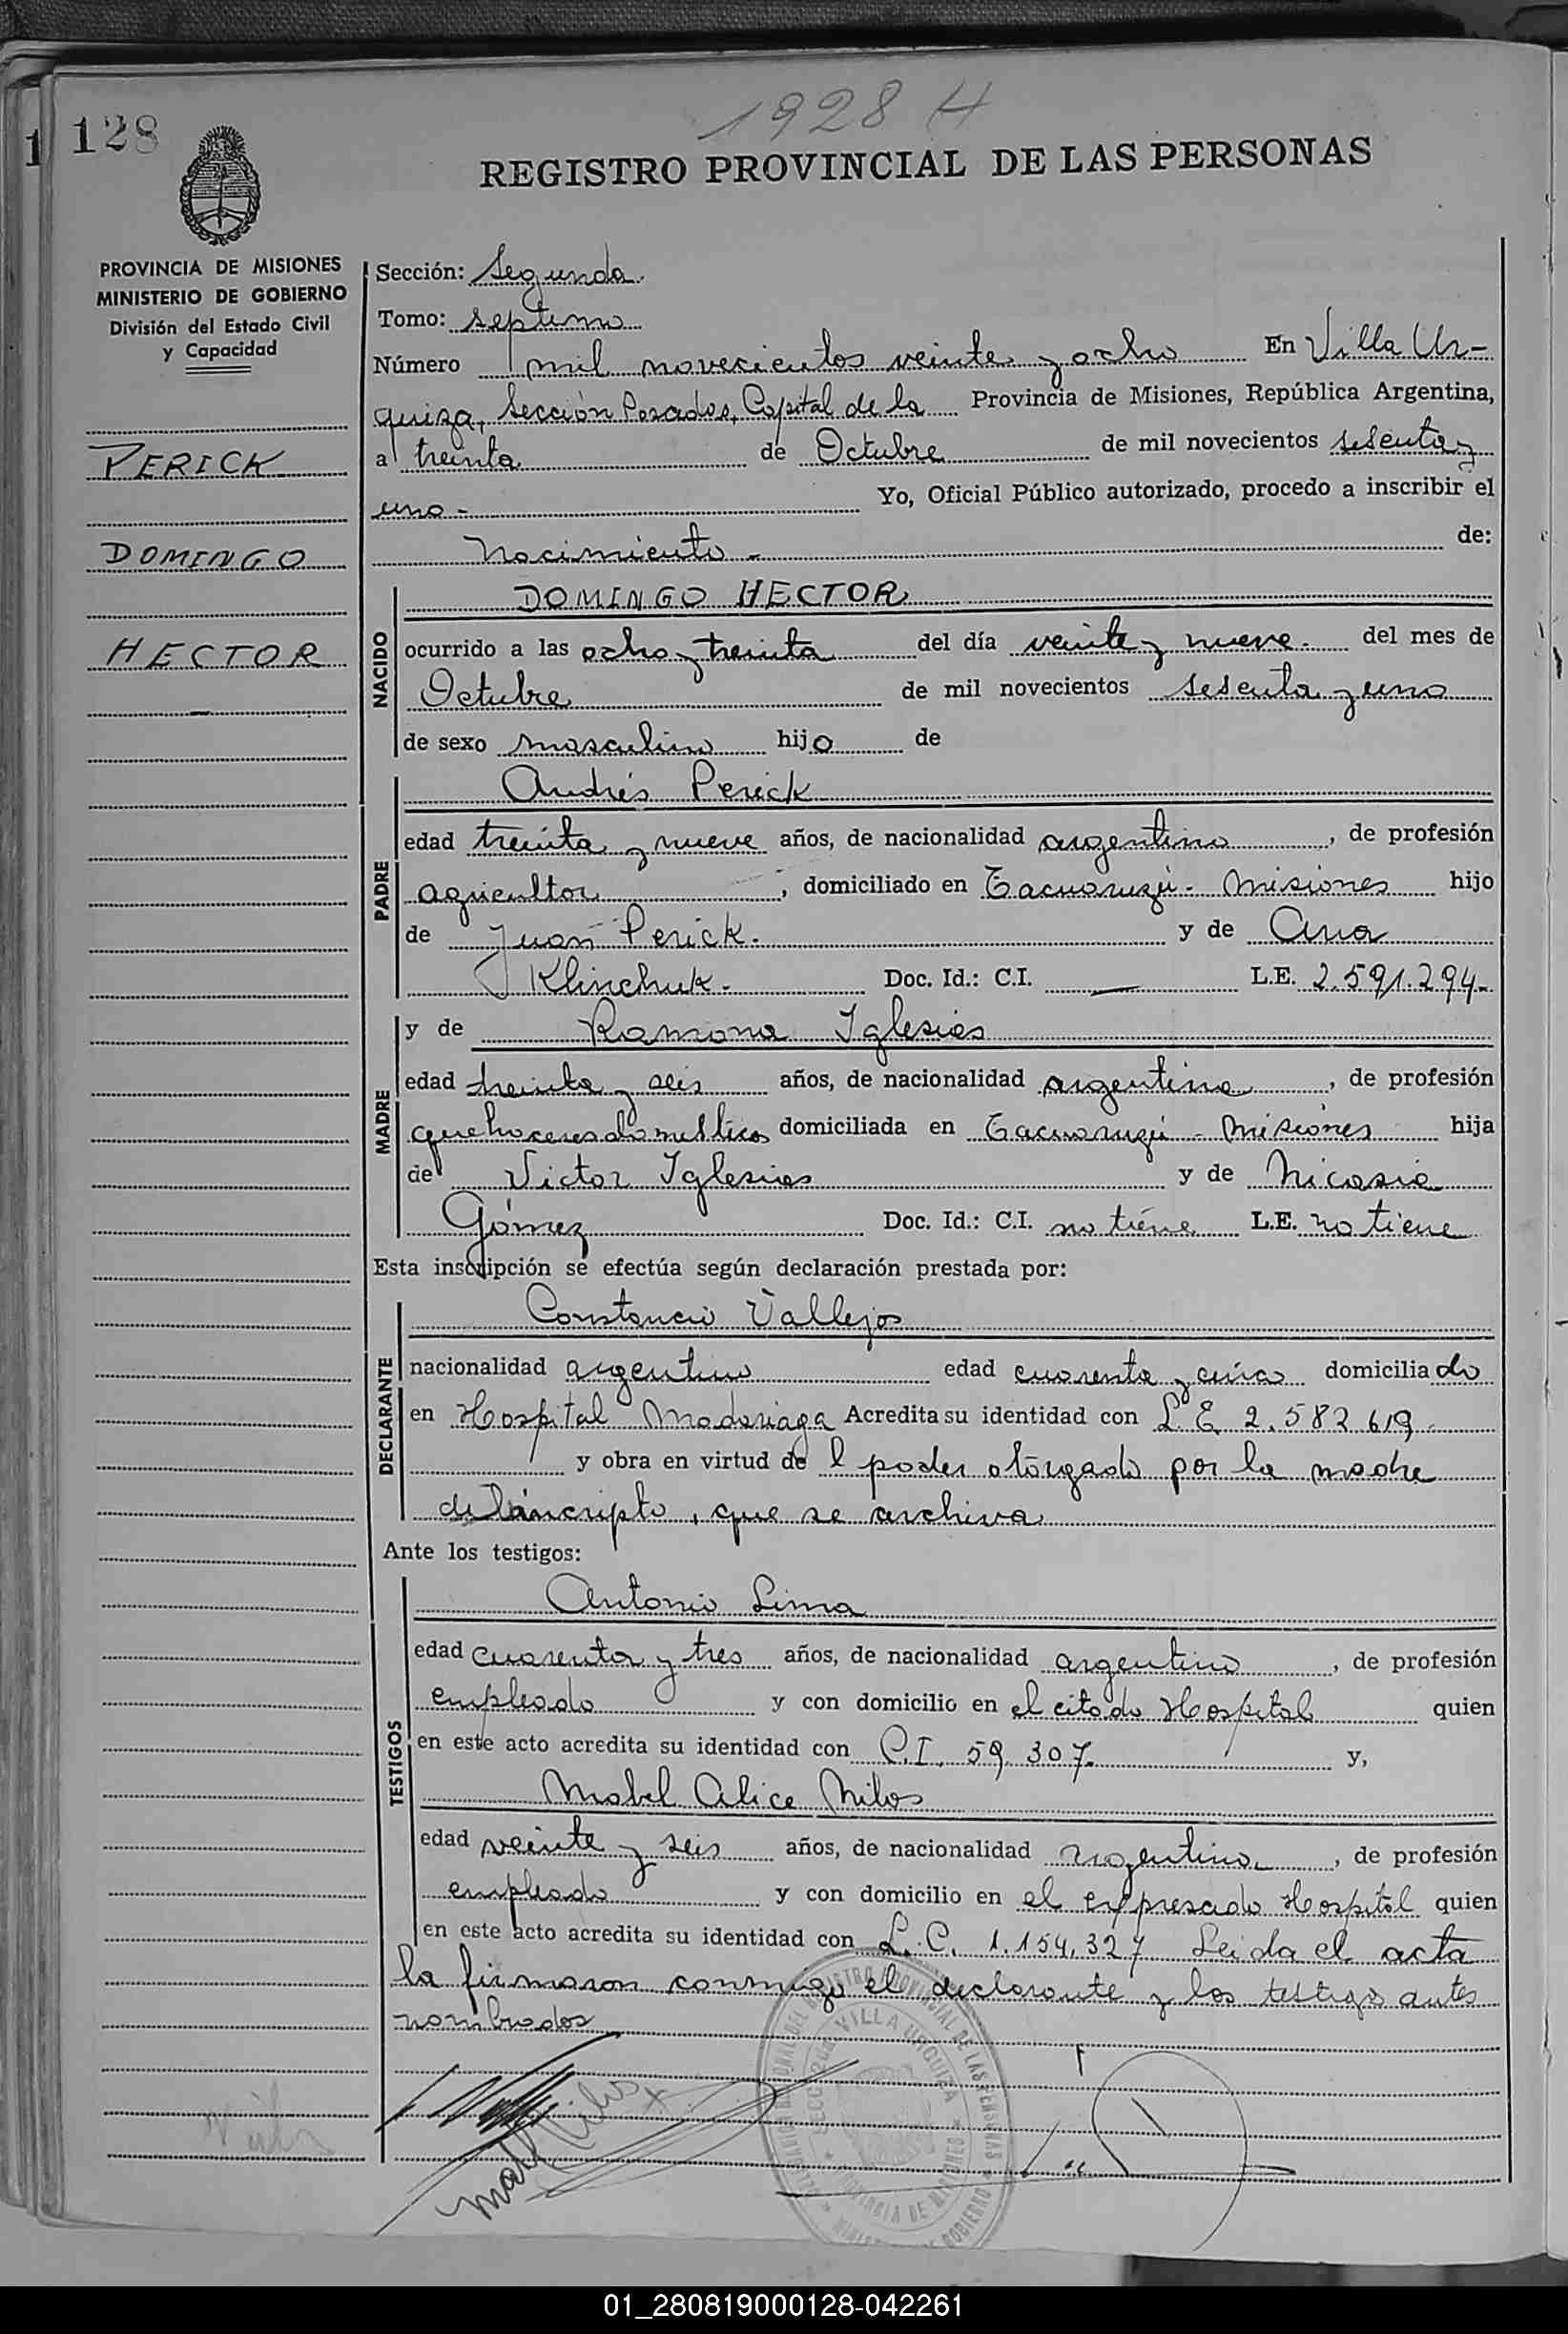 1928 H
128
1
REGISTRO PROVINCIAL DE LAS PERSONAS
PROVINCIA DE MISIONES
MINISTERIO DE GOBIERNO
División del Estado Civil
y Capacidad
PERICK
DOMINGO
HECTOR
Sección: Segunda.
Tomo: septimo
Número mil novecientos veinte y ocho En Villa Ur-
quiza, Sección Posadas, Capital de la Provincia de Misiones, República Argentina,
a treinta de Octubre de mil novecientos sesenta y
uno - Yo, Oficial Público autorizado, procedo a inscribir el
Nacimiento - de:
NACIDO
DOMINGO HECTOR
ocurrido a las ocho y treinta del día veinte y nueve. del mes de
Octubre de mil novecientos sesenta y uno
de sexo masculino hijo de
PADRE
Andrés Perick
edad treinta y nueve años, de nacionalidad argentino, de profesión
agricultor, domiciliado en Tacuaruzú - Misiones hijo
de Juan Perick. y de Ana
Klinchuk. Doc. Id.: C.I. — L.E. 2.591.294-
MADRE
y de Ramona Iglesias
edad treinta y seis años, de nacionalidad argentina, de profesión
quehaceres domesticos domiciliada en Tacuaruzú - Misiones hija
de Victor Iglesias y de Nicasia
Gómez Doc. Id.: C.I. no tiene L.E. no tiene
Esta inscripción se efectúa según declaración prestada por:
DECLARANTE
Constancio Vallejos
nacionalidad argentino edad cuarenta y cinco domiciliado
en Hospital Madariaga Acredita su identidad con L.E. 2.582.619.
y obra en virtud del poder otorgado por la madre
del inscripto, que se archiva
Ante los testigos:
TESTIGOS
Antonio Lima
edad cuarenta y tres años, de nacionalidad argentino, de profesión
empleado y con domicilio en el citado Hospital quien
en este acto acredita su identidad con C.I. 59.307. y,
Mabel Alice Milos
edad veinte y seis años, de nacionalidad argentina, de profesión
empleado y con domicilio en el expresado Hospital quien
en este acto acredita su identidad con L.C. 1.154.327 Leida el acta
la firmaron conmigo el declarante y los testigos antes
nombrados
VILLA URQUIZA
01_280819000128-042261